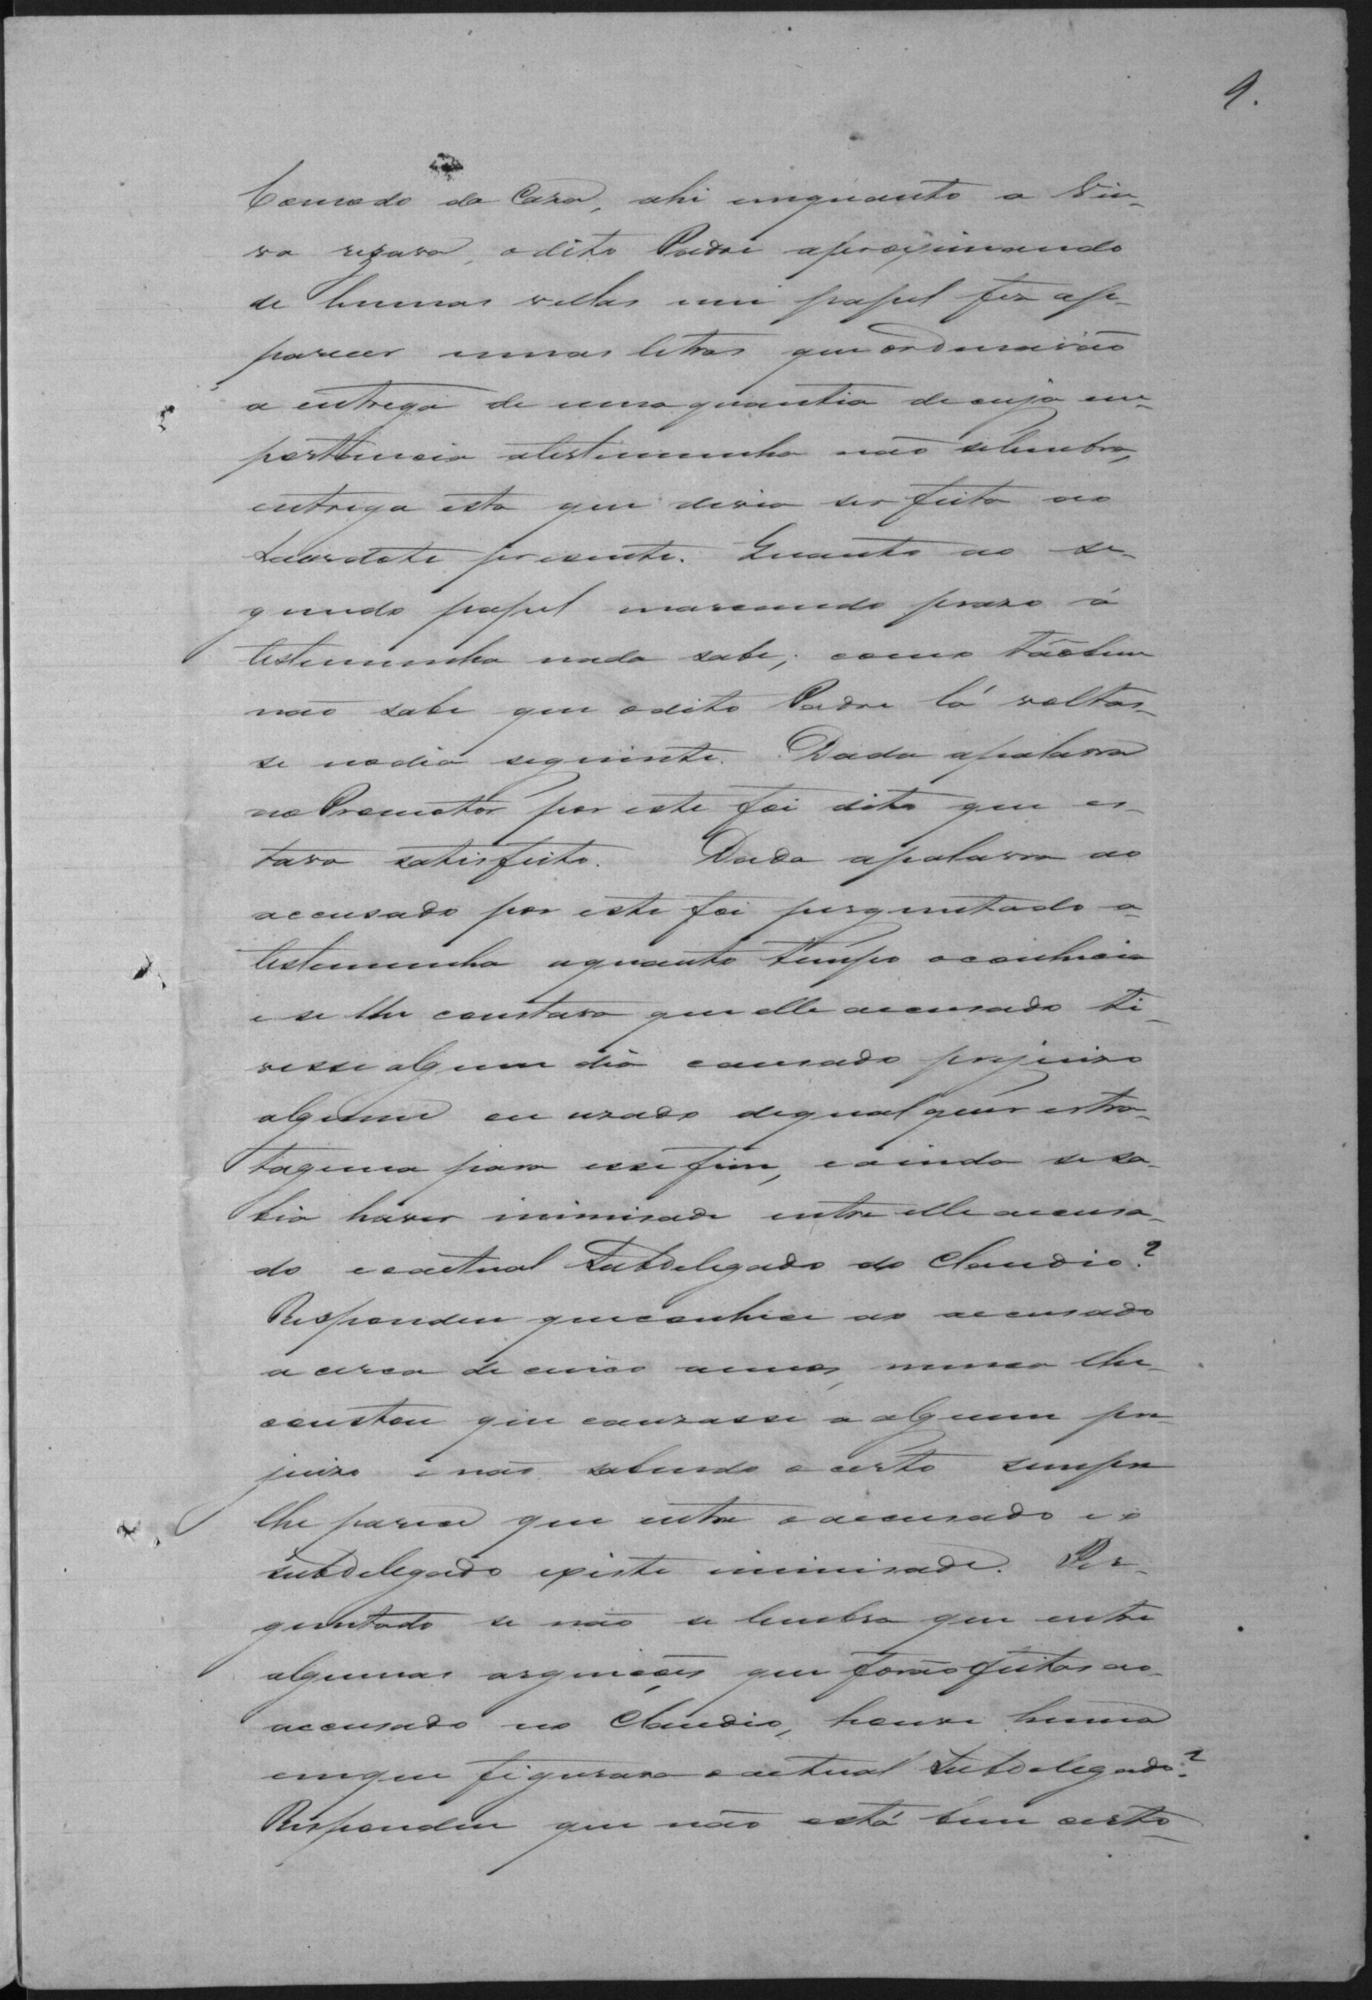 9.
Comodo da Caza, ahi emquanto a Viu-
va rezava, o dito Padre aproximando
de humas vellas um papel fez ap-
parecer umas letras que ordenavão
a entrega de uma quantia de cuja em-
portancia atestemunha não selembra,
entrega esta que devia ser feita ao
Sacerdote presente. Quanto ao se-
gundo papel marcando prazo á
testemunha nada sabe; como tãobem
não sabe que odito Padre lá voltas-
se nodia seguinte. Dada apalavra
ao Promotor por este foi dito que es-
tava satisfeito. Dada apalavra ao
accusado por este foi perguntado a
testemunha aquanto tempo oconhecia
e se lhe constava que elle accusado ti-
vesse algum dia causado prejuizo
alguem ou uzado dequalquer estra-
tagema para esse fim, eainda sesa-
bia haver inimisade entre elle accusa-
do eoactual Subdelegado do Claudio?
Respondeu queconhece ao accusado
a cerca de cinco annos, nunca lhe
constou que cauzasse a alguem pre
juizo e não sabendo o certo sempre
lhe parece que entre oaccusado e o
Subdelegado existe inimisade. Per-
guntado se não se lembra que entre
algumas arguições que forão feitas ao
accusado no Claudio, houve huma
emque figurava o actual Subdelegado?
Respondeu que não está bem certo